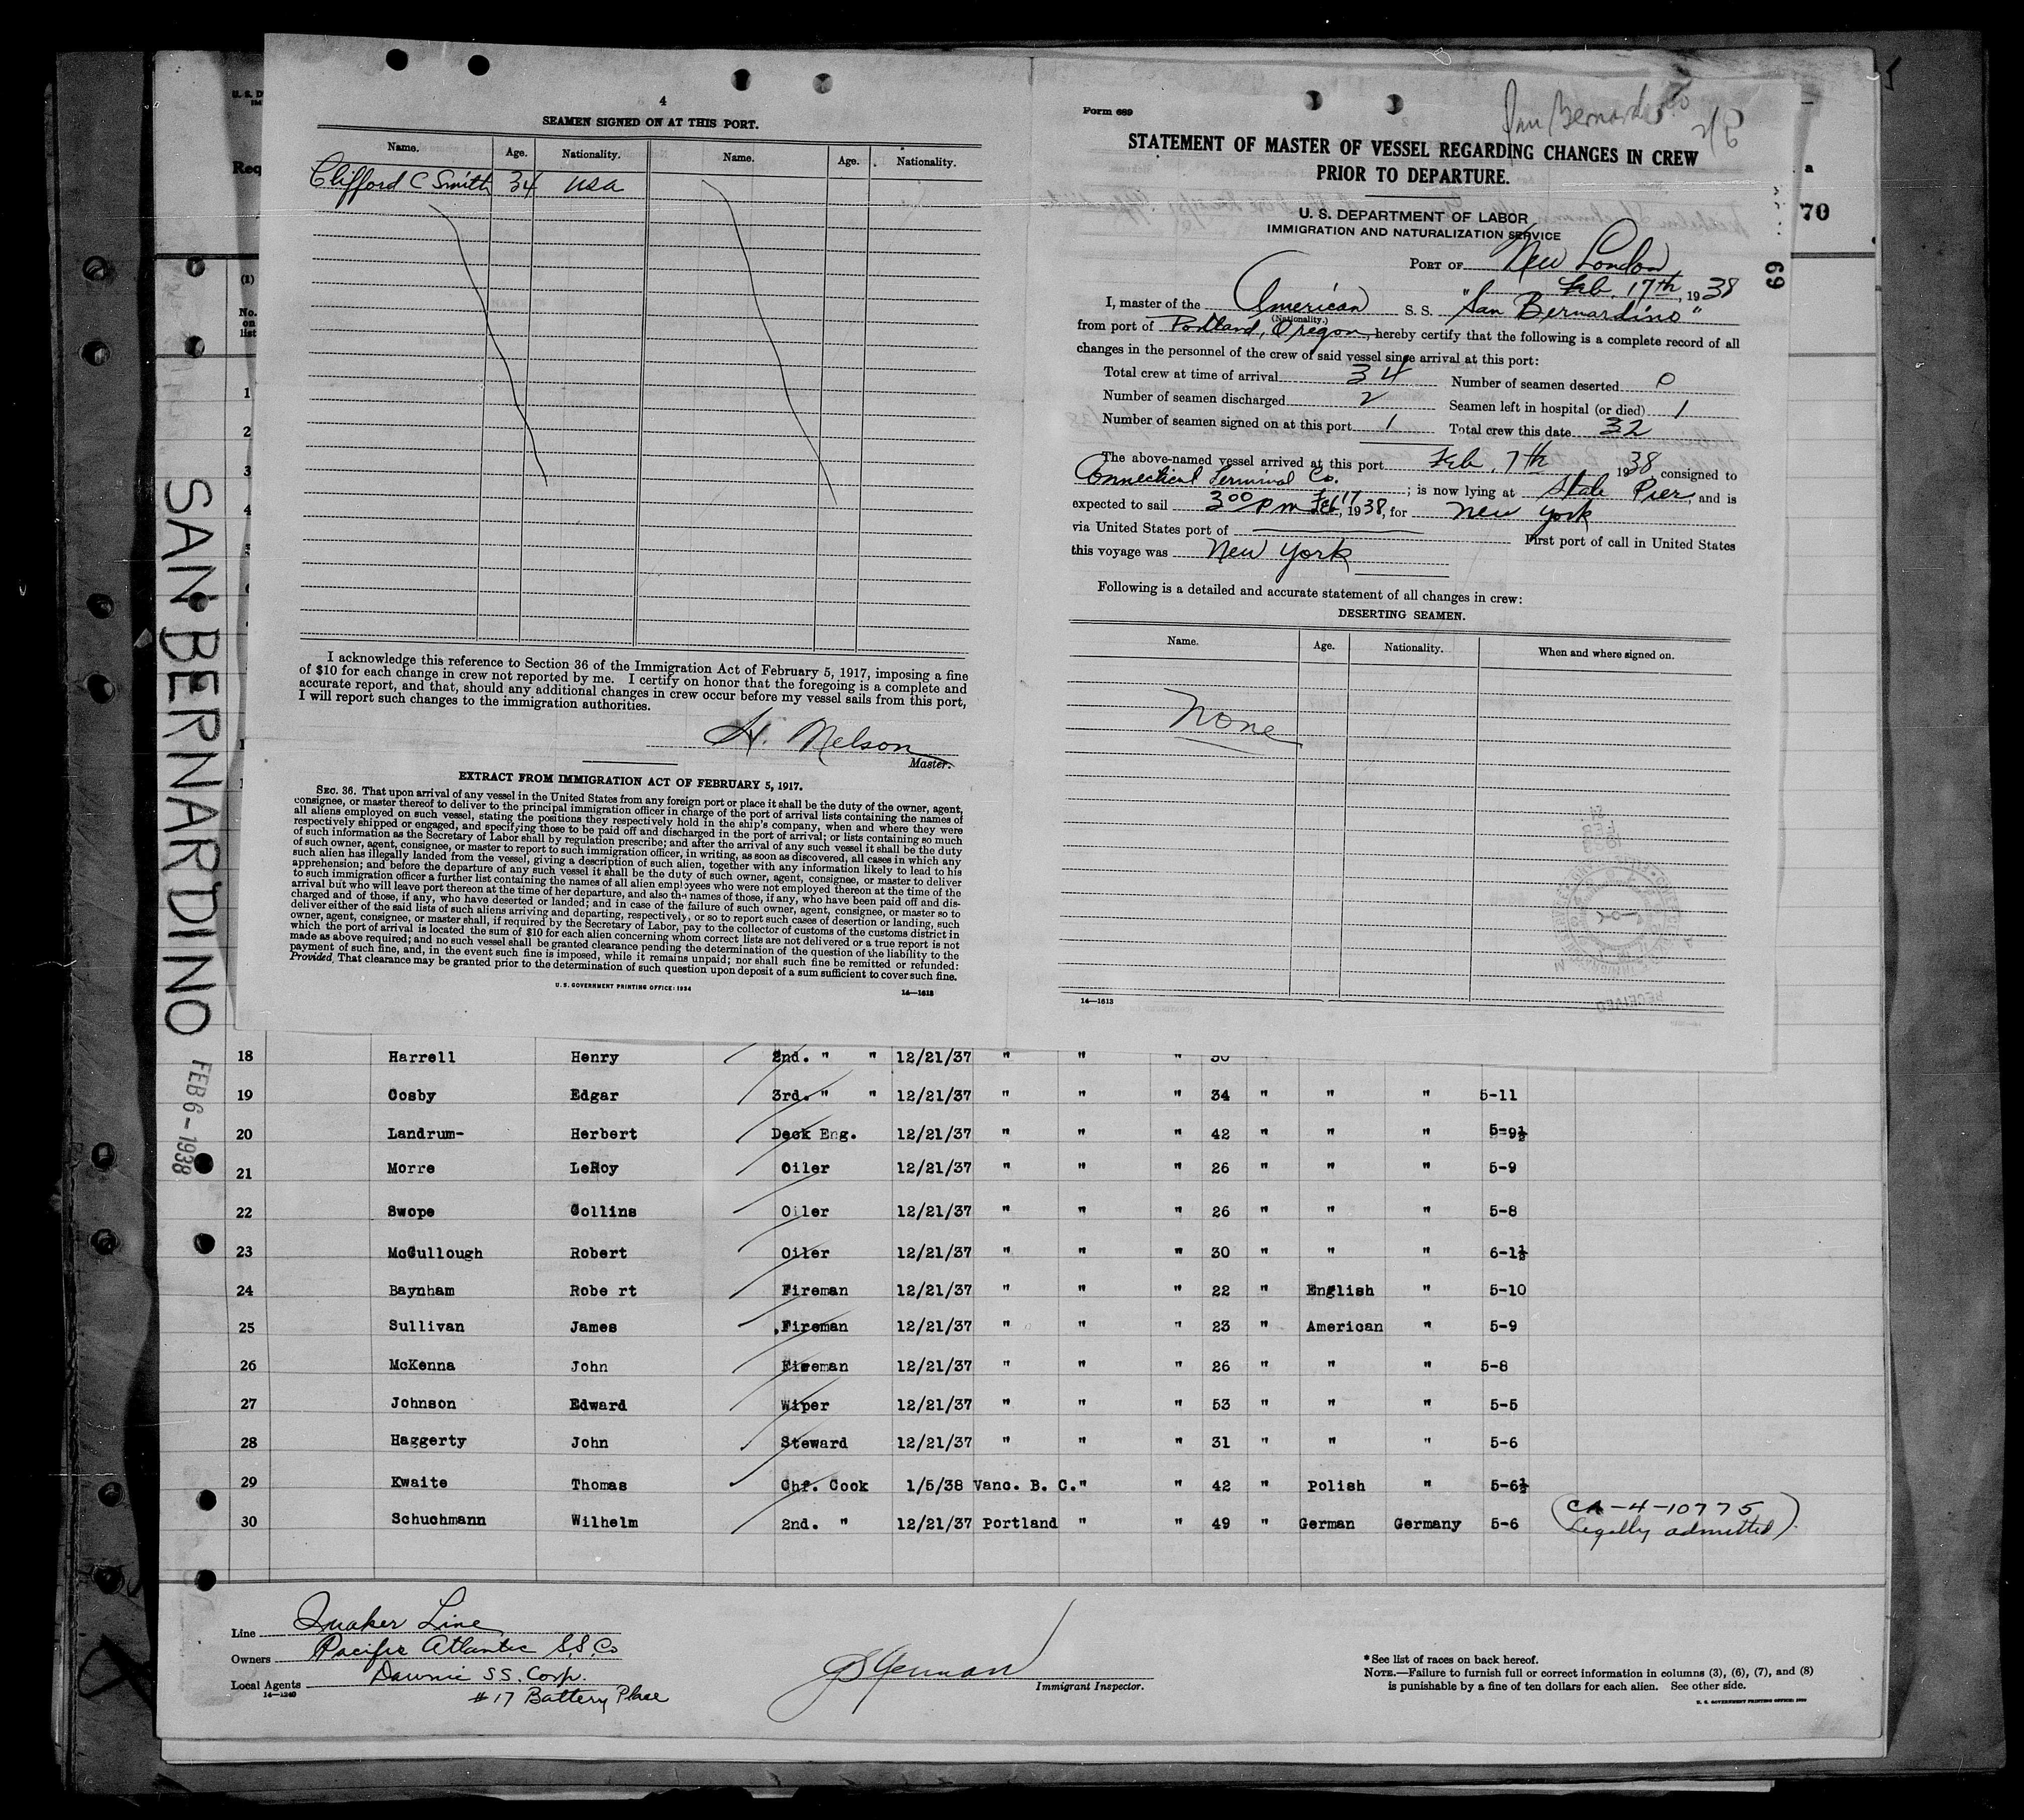 SAN BERNARDINO
FEB 6 - 1938
U. S. D
Req
a
70
69
(1)
No.
on
list
1
2
3
4
4
SEAMEN SIGNED ON AT THIS PORT.
Name. Age. Nationality. Name. Age. Nationality.
Clifford C Smith 34 USA
I acknowledge this reference to Section 36 of the Immigration Act of February 5, 1917, imposing a fine
of $10 for each change in crew not reported by me. I certify on honor that the foregoing is a complete and
accurate report, and that, should any additional changes in crew occur before my vessel sails from this port,
I will report such changes to the immigration authorities.
H. Nelson
Master.
EXTRACT FROM IMMIGRATION ACT OF FEBRUARY 5, 1917.
SEC. 36. That upon arrival of any vessel in the United States from any foreign port or place it shall be the duty of the owner, agent,
consignee, or master thereof to deliver to the principal immigration officer in charge of the port of arrival lists containing the names of
all aliens employed on such vessel, stating the positions they respectively hold in the ship's company, when and where they were
respectively shipped or engaged, and specifying those to be paid off and discharged in the port of arrival; or lists containing so much
of such information as the Secretary of Labor shall by regulation prescribe; and after the arrival of any such vessel it shall be the duty
of such owner, agent, consignee, or master to report to such immigration officer, in writing, as soon as discovered, all cases in which any
such alien has illegally landed from the vessel, giving a description of such alien, together with any information likely to lead to his
apprehension; and before the departure of any such vessel it shall be the duty of such owner, agent, consignee, or master to deliver
to such immigration officer a further list containing the names of all alien employees who were not employed thereon at the time of the
arrival but who will leave port thereon at the time of her departure, and also the names of those, if any, who have been paid off and dis-
charged and of those, if any, who have deserted or landed; and in case of the failure of such owner, agent, consignee, or master so to
deliver either of the said lists of such aliens arriving and departing, respectively, or so to report such cases of desertion or landing, such
owner, agent, consignee, or master shall, if required by the Secretary of Labor, pay to the collector of customs of the customs district in
which the port of arrival is located the sum of $10 for each alien concerning whom correct lists are not delivered or a true report is not
made as above required; and no such vessel shall be granted clearance pending the determination of the question of the liability to the
payment of such fine, and, in the event such fine is imposed, while it remains unpaid; nor shall such fine be remitted or refunded:
Provided, That clearance may be granted prior to the determination of such question upon deposit of a sum sufficient to cover such fine.
U. S. GOVERNMENT PRINTING OFFICE: 1934 14—1613
Form 689
San Bernardino
STATEMENT OF MASTER OF VESSEL REGARDING CHANGES IN CREW
PRIOR TO DEPARTURE.
U. S. DEPARTMENT OF LABOR
IMMIGRATION AND NATURALIZATION SERVICE
PORT OF New London
Feb. 17th, 1938
I, master of the American S. S. "San Bernardino"
(Nationality.)
from port of Portland, Oregon, hereby certify that the following is a complete record of all
changes in the personnel of the crew of said vessel since arrival at this port:
Total crew at time of arrival 34 Number of seamen deserted 0
Number of seamen discharged 2 Seamen left in hospital (or died) 1
Number of seamen signed on at this port 1 Total crew this date 32
The above-named vessel arrived at this port Feb. 7th 1938 consigned to
Connecticut Terminal Co. ; is now lying at State Pier, and is
expected to sail 3 00 Pm Feb 17, 1938, for New York
via United States port of First port of call in United States
this voyage was New York
Following is a detailed and accurate statement of all changes in crew:
DESERTING SEAMEN.
Name. Age. Nationality. When and where signed on.
None
14—1613
18 Harrell Henry 2nd. " " 12/21/37 " " "
19 Cosby Edgar 3rd. " " 12/21/37 " " " 34 " " " 5-11
20 Landrum- Herbert Deck Eng. 12/21/37 " " " 42 " " " 5-9½
21 Morre LeRoy Oiler 12/21/37 " " " 26 " " " 5-9
22 Swope Collins Oiler 12/21/37 " " " 26 " " " 5-8
23 McCullough Robert Oiler 12/21/37 " " " 30 " " " 6-1½
24 Baynham Robe rt Fireman 12/21/37 " " " 22 " English " 5-10
25 Sullivan James Fireman 12/21/37 " " " 23 " American " 5-9
26 McKenna John Fireman 12/21/37 " " " 26 " " " 5-8
27 Johnson Edward Wiper 12/21/37 " " " 53 " " " 5-5
28 Haggerty John Steward 12/21/37 " " " 31 " " " 5-6
29 Kwaite Thomas Chf. Cook 1/5/38 Vanc. B. C." " 42 " Polish " 5-6½
30 Schuchmann Wilhelm 2nd. " 12/21/37 Portland " " 49 " German Germany 5-6 (CA-4-10775
Legally admitted)
Line Quaker Line
Owners Pacific Atlantic S.S. Co
Local Agents SS. Corp.
14—1240 #17 Battery Place
Immigrant Inspector.
* See list of races on back hereof.
NOTE.—Failure to furnish full or correct information in columns (3), (6), (7), and (8)
is punishable by a fine of ten dollars for each alien. See other side.